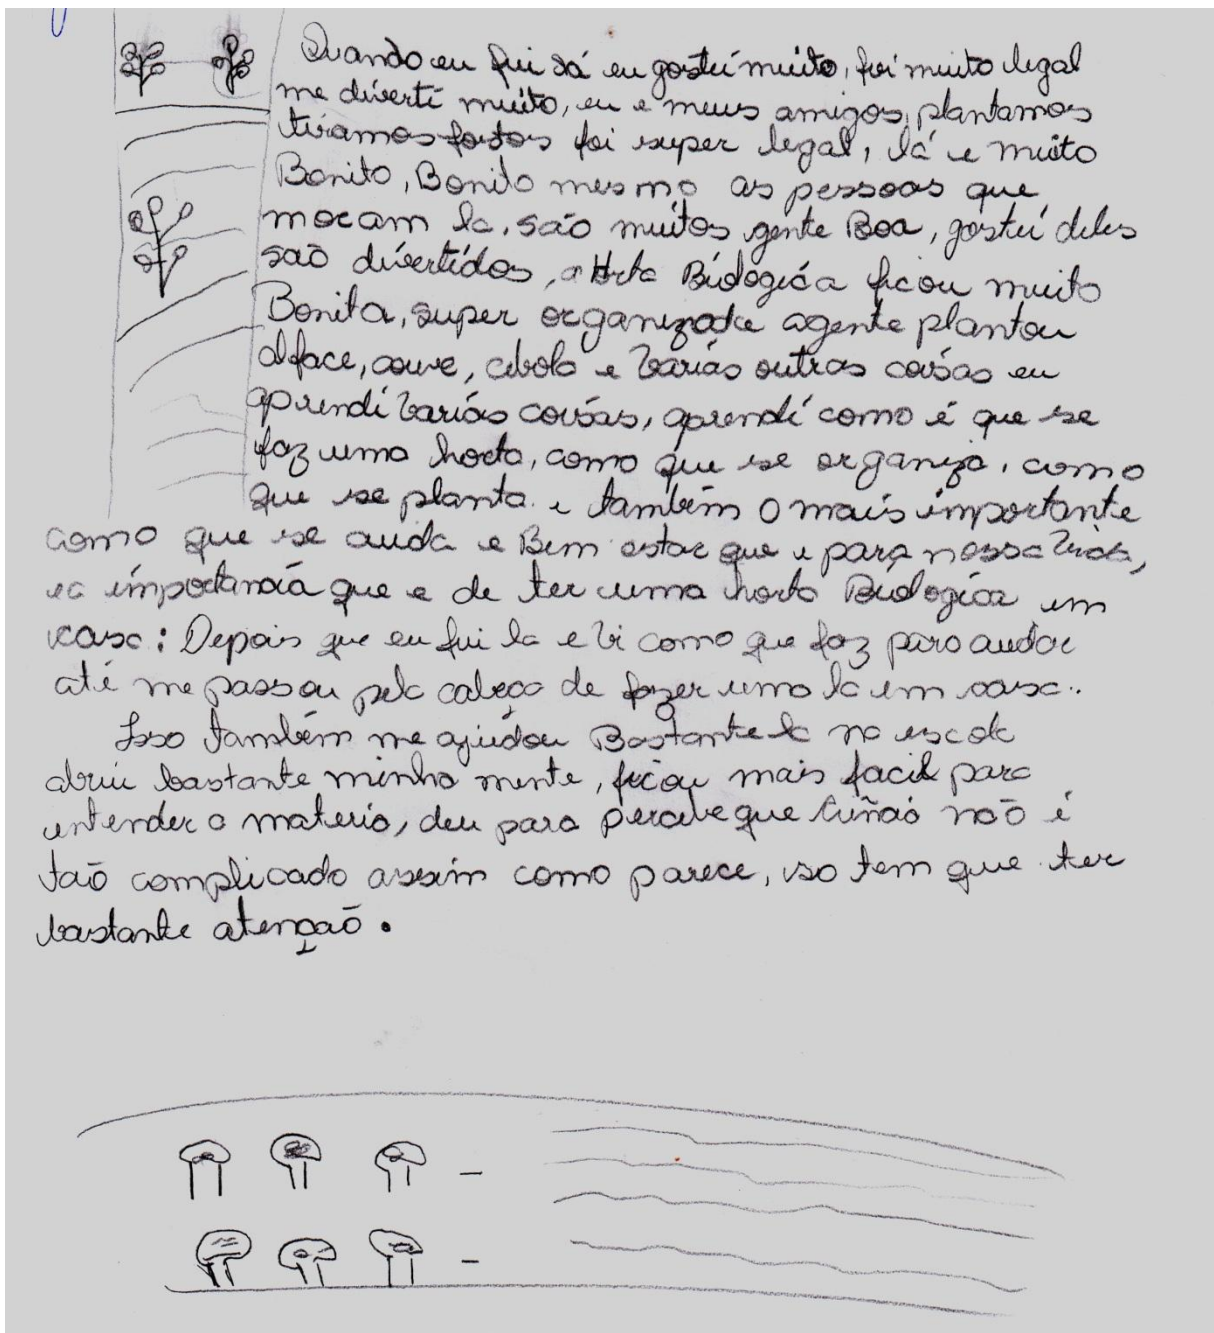 Quando eu fui lá eu gostei muito, foi muito legal
me diverti muito, eu e meus amigos, plantamos
tiramos fotos foi super legal, lá e muito
Bonito, Bonito mesmo as pessoas que
moram la, são muitos gente Boa, gostei deles
são divertidos, a Horta Biologica ficou muito
Bonita, super organizada agente plantou
alface, couve, cebola e varias outras coisas eu
aprendi varias coisas, aprendi como é que se
faz uma horta, como que se organiza, como
que se planta e também o mais importante
como que se cuida e Bem estar que e para nossa vida,
e a importancia que e de ter uma horta Biologica em
casa: Depois que eu fui la e vi como que faz para cuidar
até me passou pela cabeça de fazer uma la em casa..
Isso também me ajudou Bastante la na escola
abriu bastante minha mente, ficou mais facil para
entender a materia, deu para percebe que não é
tão complicado assim como parece, so tem que ter
bastante atenção.